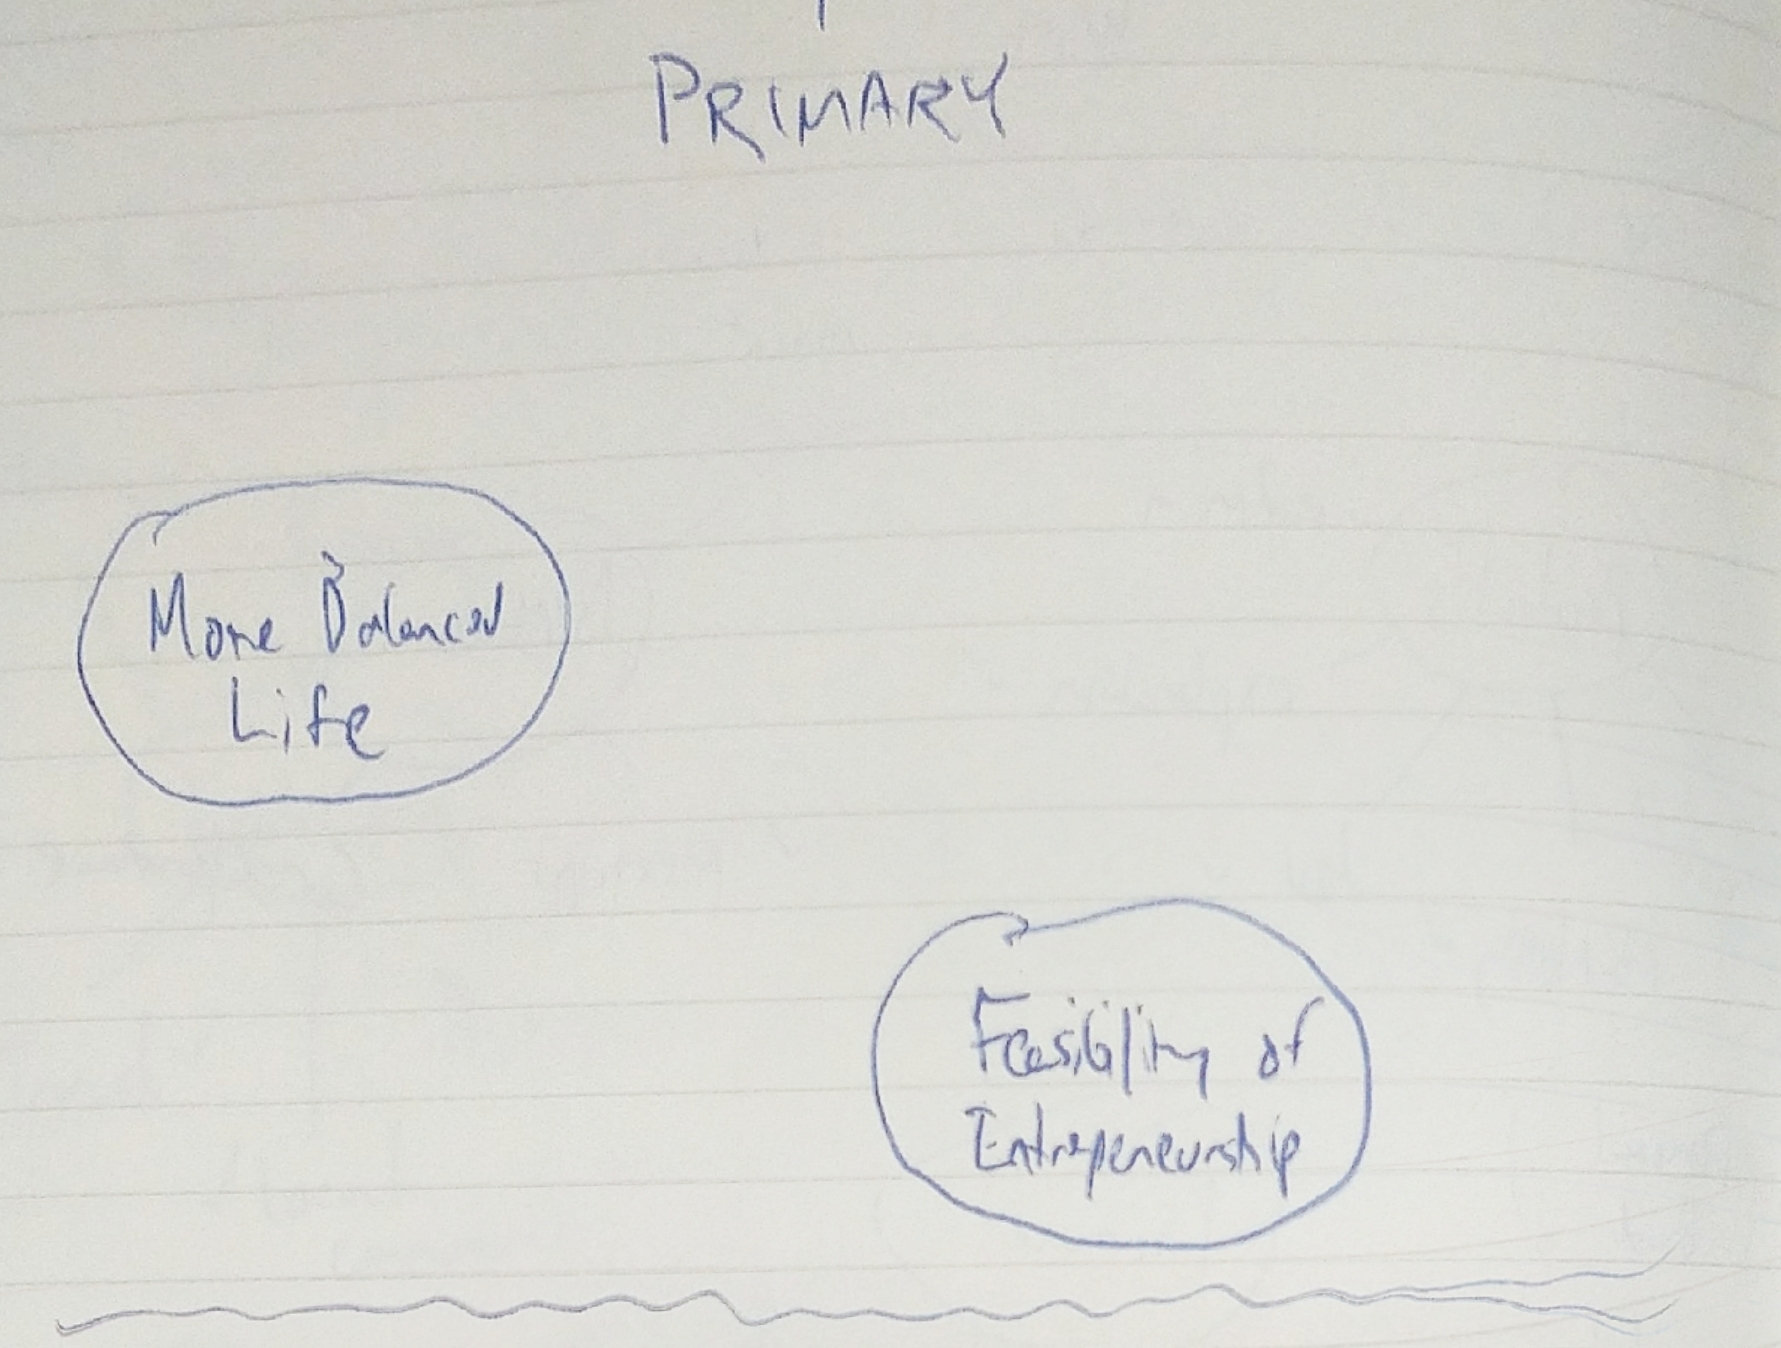 PRIMARY
More Balanced
Life
Feasibility of
Entrepeneurship